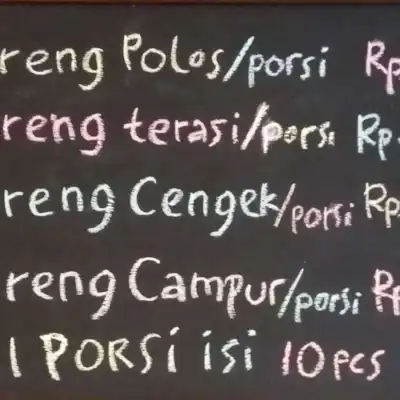 reng Polos/porsi Rp
reng terasi/porsi Rp.
reng Cengek/porsi Rp
reng Campur/porsi Rp
1 PORSi isi 10 pcs